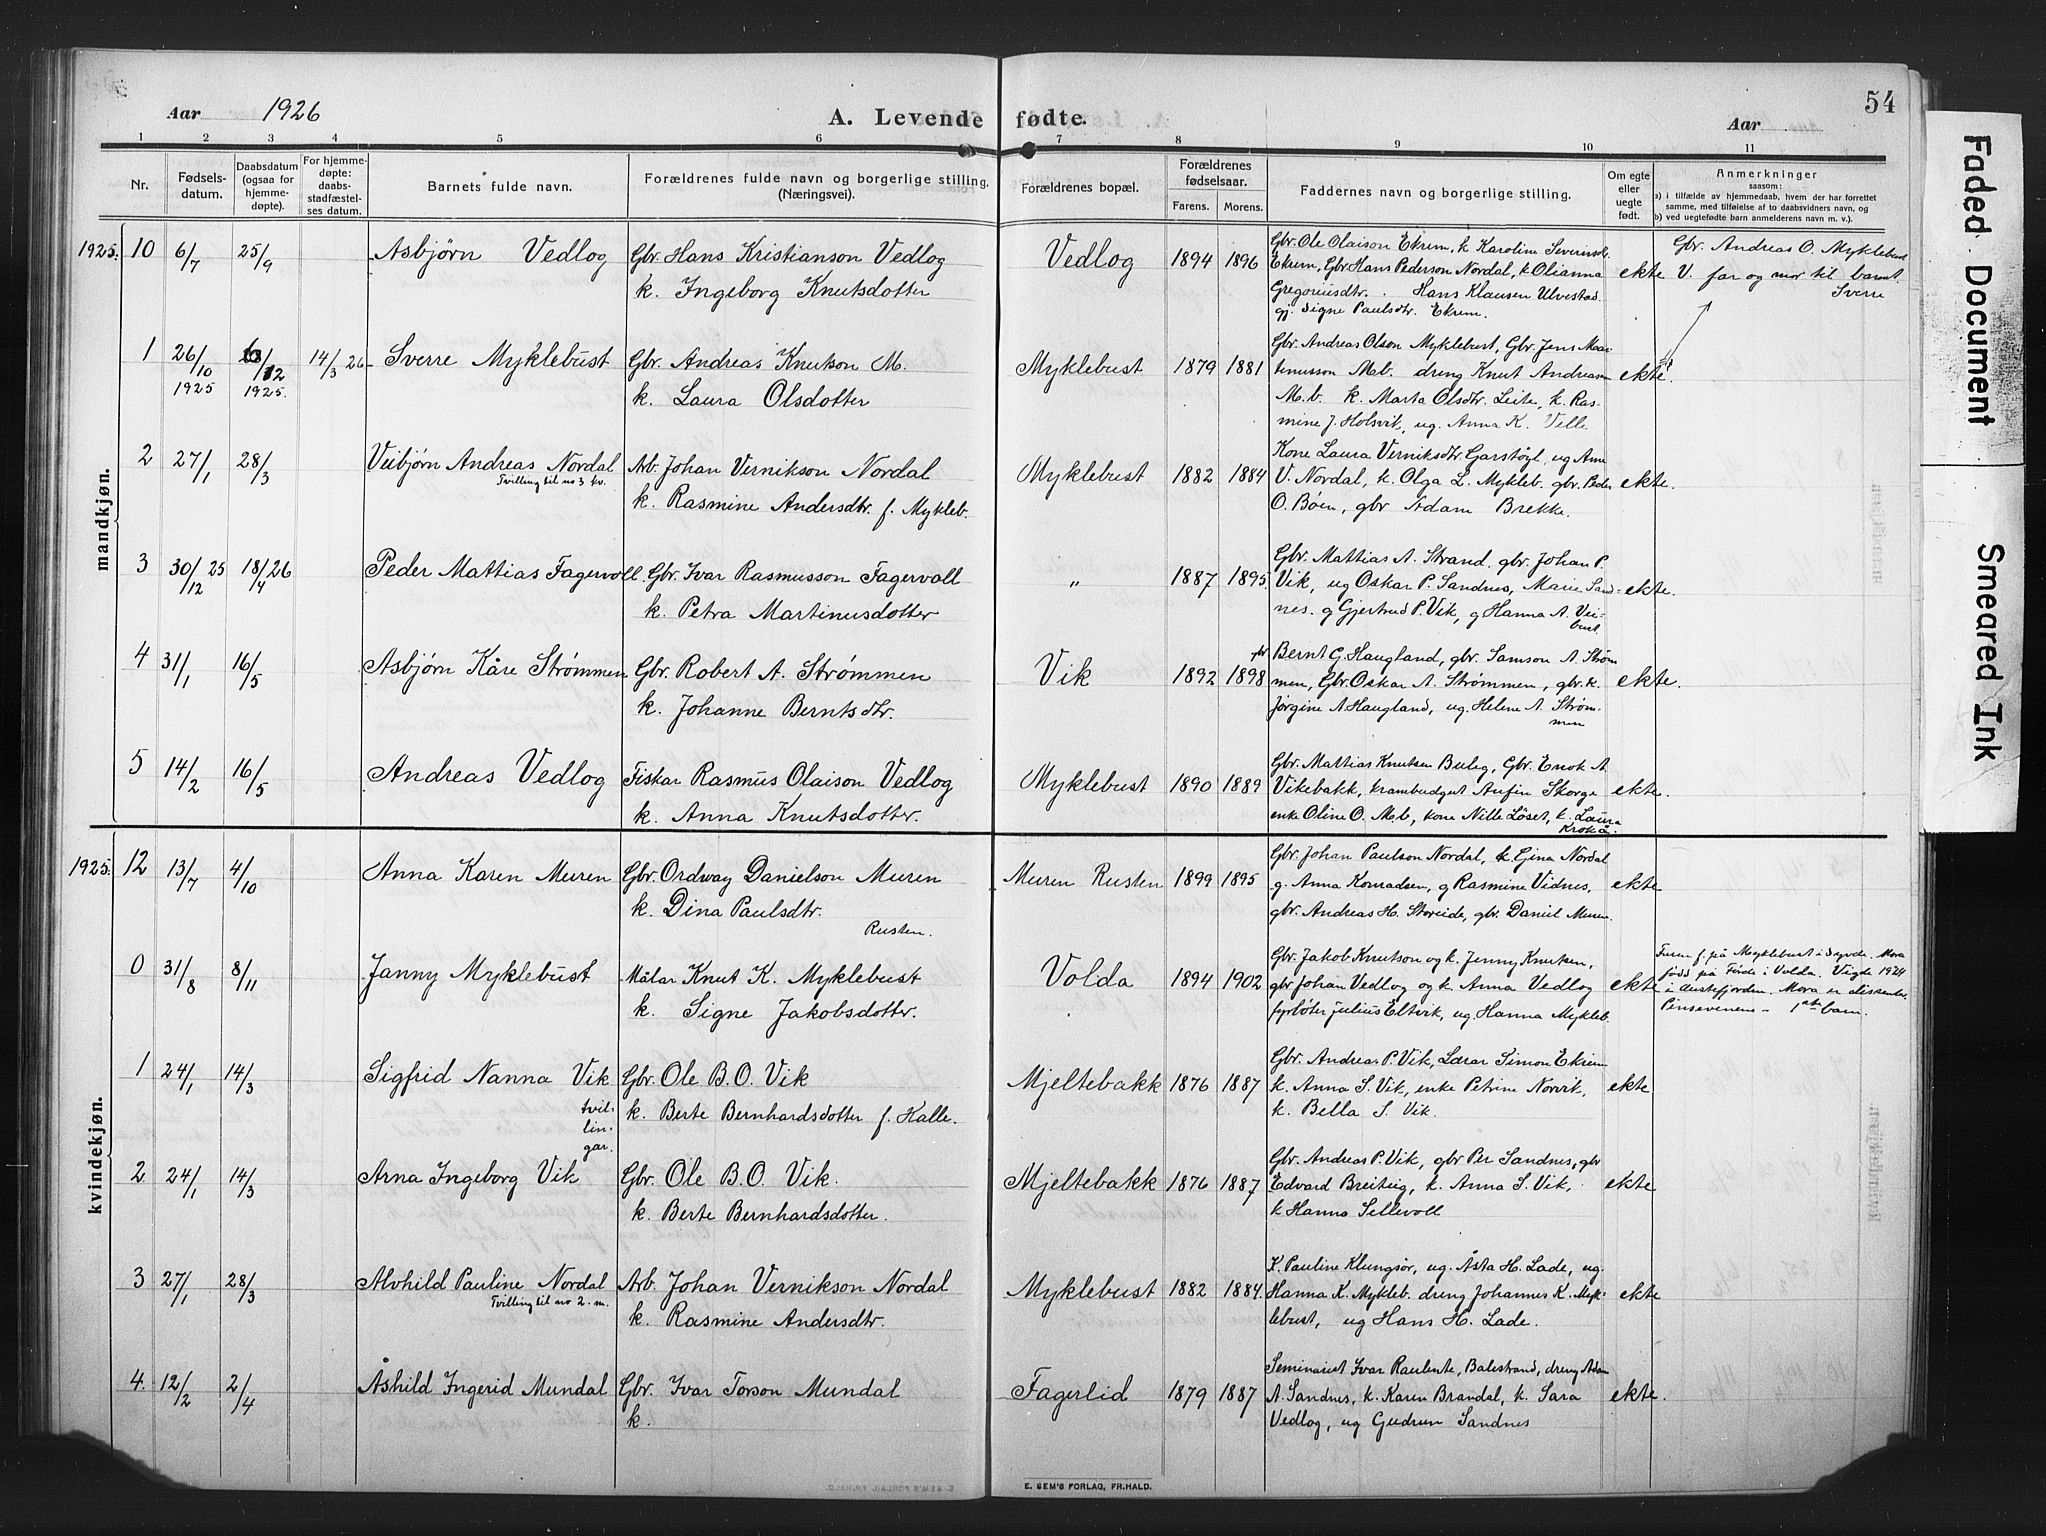 Aar 1926
A. Levende fødte.
Aar
54
1 2 3 4 5 6 7 8 9 10 11
Nr.
Fødsels-
datum.
Daabsdatum
(ogsaa for
hjemme-
døpte).
For hjemme-
døpte:
daabs-
stadfæstel-
ses datum.
Barnets fulde navn.
Forældrenes fulde navn og borgerlige stilling.
(Næringsvei).
Forældrenes bopæl.
Forældrenes
fødselsaar.
Farens. Morens.
Faddernes navn og borgerlige stilling.
Om egte
eller
uegte
født.
Anmerkninger
saasom:
a) i tilfælde av hjemmedaab, hvem der har forrettet
samme, med tilføielse af to daabsvidners navn, og
b) ved uegtefødte barn anmelderens navn m. v.).
mandkjøn.
1925. 10 6/7 25/9 Asbjørn Vedlog
Gbr. Hans Kristianson Vedlog
k. Ingeborg Knutsdotter
Vedlog 1894 1896
Gbr. Ole Olaison Ekrem, k. Karoline Severinsdtr.
Ekrem, Gbr. Hans Pederson Nordal, k. Olianna
Gregoriusdtr. Hans Klausen Ulvestad
gj. Signe Paulsdtr. Ekrem.
ekte
Gbr. Andreas O. Myklebust
V. far og mor til barnet
Sverre
1 26/10 1925 /12 1925. 14/3 26 Sverre Myklebust
Gbr. Andreas Knutson M.
k. Laura Olsdotter
Myklebust 1879 1881
Gbr. Andreas Olson Myklebust, Gbr. Jens Mar-
tinusson M.b. dreng Knut Andreasen
M.b. k. Marta Olsdtr. Leite, k. Ras-
mine J. Holsvik, ug. Anna K. Velle
ekte.
2 27/1 28/3 Veibjørn Andreas Nordal
Tvilling til no 3 kv.
Arb. Johan Vernikson Nordal
k. Rasmine Andersdtr. f. Mykleb.
Myklebust 1882 1884
Kone Laura Verniksdtr. Garshøyl, ug Anne
V. Nordal, k. Olga L. Mykleb. gbr. Peder
O. Bøen, gbr Adam Brekke.
ekte.
3 30/12 25 18/4 26 Peder Mattias Fagervoll
Gbr. Ivar Rasmusson Fagervoll
k. Petra Martinusdotter
" 1887 1895.
Gbr. Mattias A. Strand. gbr. Johan P.
Vik, ug Oskar P. Sandnes, Marie Sand-
nes. g Gjertrud P. Vik, g Hanna A. Vei-
bust.
ekte.
4 31/1 16/5 Asbjørn Kåre Strømmen
Gbr. Robert A. Strømmen
k. Johanne Berntsdtr.
Vik 1892 1898
gbr Bernt G. Haugland, gbr. Samson A. Strøm
men, Gbr. Oskar A. Strømmen, gbr. k.
Jørgine A Haugland, ug. Helene A. Strøm-
men
ekte.
5 14/2 16/5 Andreas Vedlog
Fiskar Rasmus Olaison Vedlog
k. Anna Knutsdotter.
Myklebust 1890 1889
Gbr. Mattias Knutsen Buleg, Gbr. Enok A
Vikebakk, krambudgut Anfin Skorge
enke Oline O. M.b, kone Nille Løset, k. Laura
Krokå.
ekte.
kvindekjøn.
1925. 12 13/7 4/10 Anna Karen Muren
Gbr. Ordway Danielson Muren
k. Dina Paulsdtr.
Rusten.
Muren Rusten 1899 1895
Gbr. Johan Paulson Nordal, k. Gina Nordal
g. Anna Konradsen, g Rasmine Vidnes,
gbr. Andreas H. Storeide, gbr. Daniel Muren.
ekte
0 31/8 8/11 Janny Myklebust
Målar Knut K. Myklebust
k. Signe Jakobsdotter.
Volda 1894 1902
Gbr. Jakob Knutson og k. Jenny Knutsen,
gbr Johan Vedlog og k. Anna Vedlog
fyrbøter Julius Eltvik, ug. Hanna Mykleb.
ekte
Faren f. på Myklebust i Syvde. Mora
født på Førde i Volda. Vigde 1924
i Austefjorden. Mora er dissenter
Pinsevenene - 1ste barn.
1 24/1 14/3 Sigfrid Nanna Vik
tvil-
lin-
gar.
Gbr. Ole B.O. Vik
k. Berte Bernhardsdotter f. Halle.
Mjeltebakk 1876 1887
Gbr. Andreas P. Vik, Lærar Simon Ekrem
k. Anna S. Vik, enke Petrine Norvik,
k. Bella S. Vik.
ekte
2 24/1 14/3 Arna Ingeborg Vik
Gbr. Ole B.O. Vik.
k. Berte Bernhardsdotter.
Mjeltebakk 1876 1887
Gbr. Andreas P. Vik, gbr Per Sandnes, gbr
Edvard Breiteig, k. Anna S. Vik,
k Hanna Sellevoll
ekte
3 27/1 28/3 Alvhild Pauline Nordal
Tvilling til no 2. m.
Arb. Johan Vernikson Nordal
k. Rasmine Andersdtr.
Myklebust 1882 1884.
K. Pauline Klungsør, ug. Åsta H. Lade, ug.
Hanna K. Mykleb. dreng Johannes K. Myk-
lebust, ug Hans H. Lade.
ekte
4. 12/2 2/4 Åshild Ingerid Mundal
Gbr. Ivar Torson Mundal
k.
Fagerlid 1879 1887
Seminarist Ivar Raulente, Balestrand, dreng Adam
A. Sandnes, k. Karen Brandal, k. Sara
Vedlog, ug Gudrun Sandnes
ekte.
E. SEM'S FORLAG, FR.HALD.
Faded Document
Smeared Ink